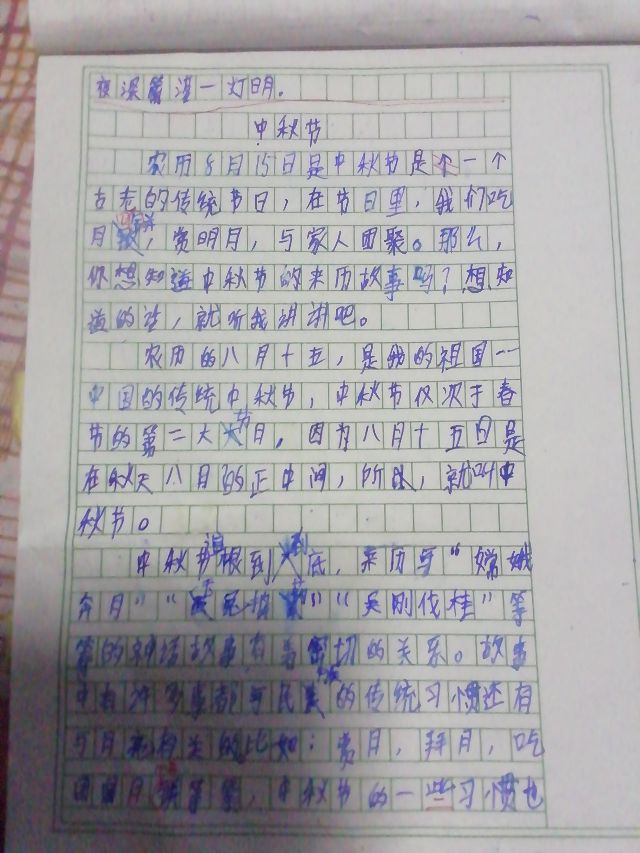 夜深篱落一灯明。
中秋节
农历8月15日是中秋节是个一个
古老的传统节日，在节日里，我们吃
月饼，赏明月，与家人团聚。那么，
你想知道中秋节的来历故事吗？想知
道的话，就听我讲讲吧。
农历的八月十五，是我的祖国一
中国的传统中秋节，中秋节仅次于春
节的第二大节日。因为八月十五日是
在秋天八月的正中间，所以，就叫中
秋节。
中秋节追根到底，来历与“嫦娥
奔月”“玉兔捣药”“吴刚伐桂”等
等的神话故事有着密切的关系。故事
中有许多事都与民族的传统习惯还有
与月亮相关的比如：赏月，拜月，吃
团圆月饼等等，中秋节的一些习惯也